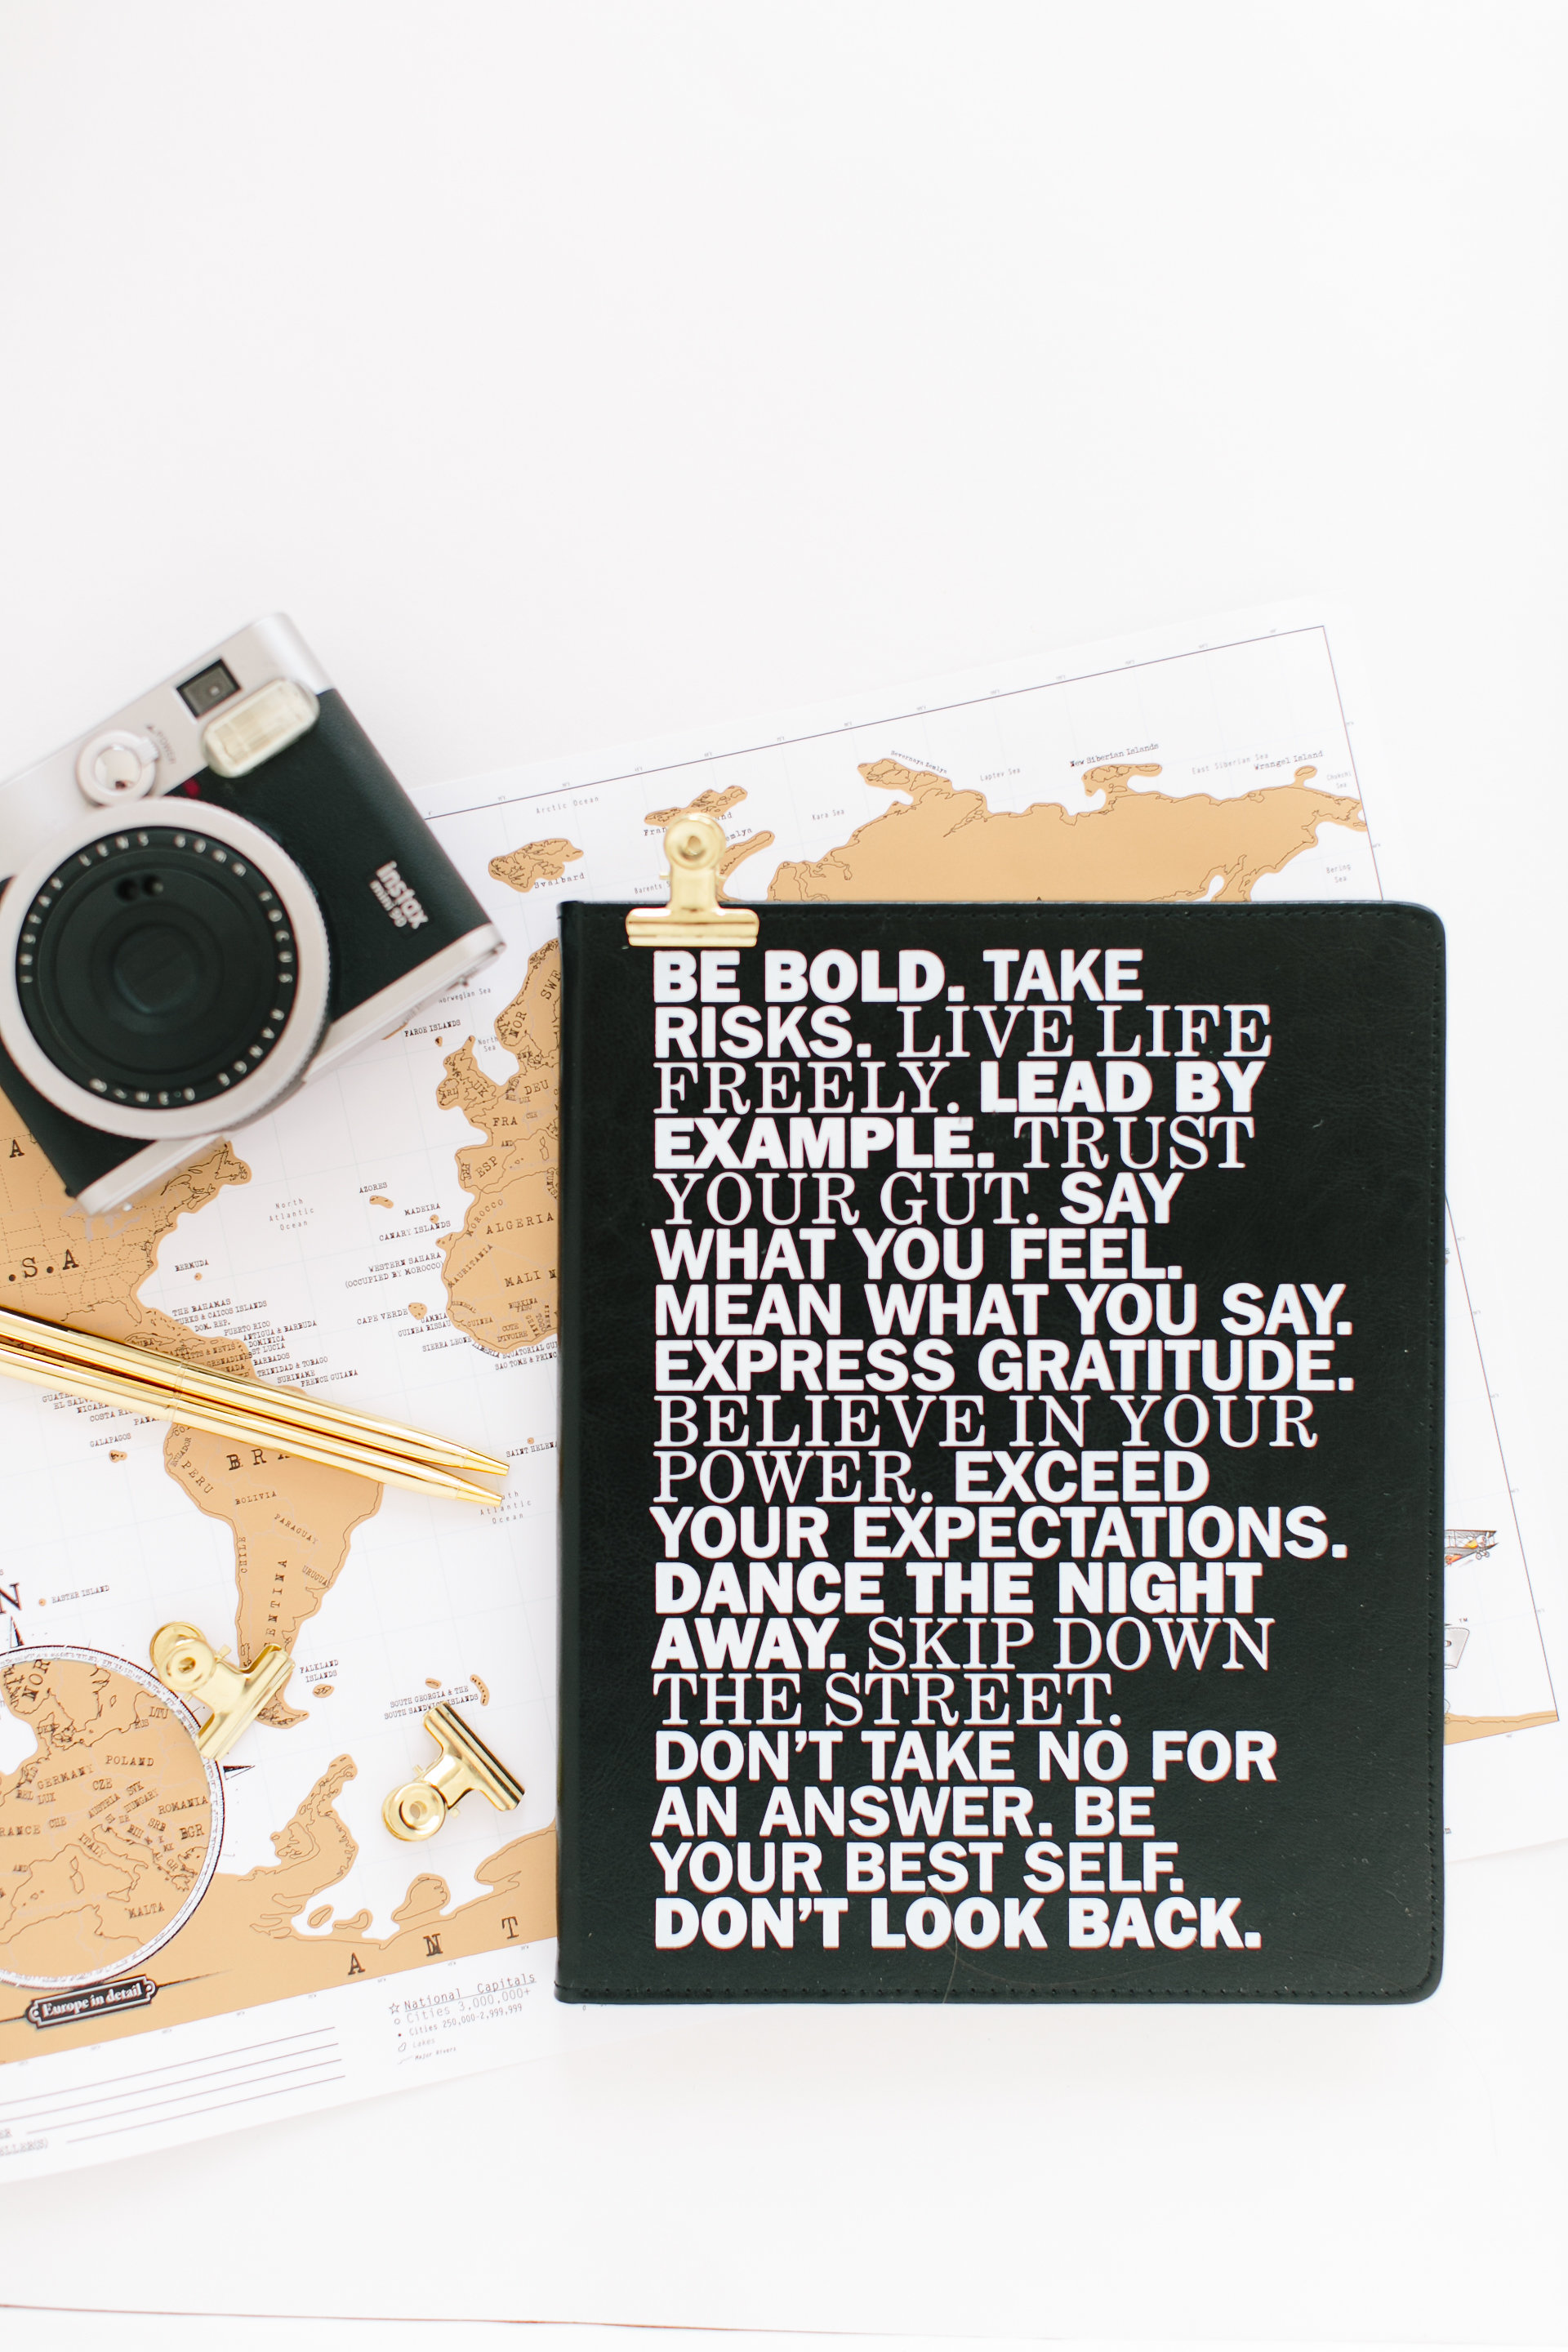 BE BOLD. TAKE
RISKS. LIVE LIFE
FREELY. LEAD BY
EXAMPLE. TRUST
YOUR GUT. SAY
WHAT YOU FEEL.
MEAN WHAT YOU SAY.
EXPRESS GRATITUDE.
BELIEVE IN YOUR
POWER. EXCEED
YOUR EXPECTATIONS.
DANCE THE NIGHT
AWAY. SKIP DOWN
THE STREET.
DON'T TAKE NO FOR
AN ANSWER. BE
YOUR BEST SELF.
DON'T LOOK BACK.
instax
mini 90
Arctic Ocean
Svalbard
Kara Sea
Laptev Sea
New Siberian Islands
East Siberian Sea
Wrangel Island
Bering
Sea
FAROE ISLANDS
North
Sea
NOR
SWE
UK
DEU
FRA
AND
ESP
AZORES
MADEIRA
CANARY ISLANDS
MOROCCO
ALGERIA
WESTERN SAHARA
(OCCUPIED BY MOROCCO)
MAURITANIA
MALI
CAPE VERDE
GAMBIA
GUINEA BISSAU
GUINEA
SIERRA LEONE
North
Atlantic
Ocean
.S.A
BERMUDA
THE BAHAMAS
DOM. REP.
PUERTO RICO
ANTIGUA & BARBUDA
DOMINICA
ST LUCIA
BARBADOS
TRINIDAD & TOBAGO
SURINAME
FRENCH GUIANA
GALAPAGOS
PERU
BOLIVIA
PARAGUAY
CHILE
SAINT HELENA
Atlantic
Ocean
EASTER ISLAND
FALKLAND
ISLANDS
SOUTH GEORGIA & THE
NOR
LTU
POLAND
GERMANY
CZE
SVK
LUX
AUSTRIA
ROMANIA
CHE
SRB
BGR
ITALY
AND
MALTA
A N T
Europe in detail
National Capitals
Cities 3,000,000+
Cities 250,000-2,999,999
Lakes
Major Rivers